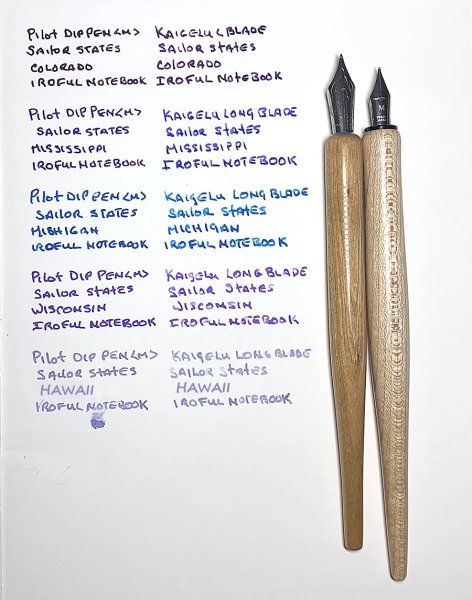 Pilot DIP PEN<M> KAIGELU L BLADE
SAILOR STATES SAILOR STATES
COLORADO COLORADO
IROFUL NOTEBOOK IROFUL NOTEBOOK
Pilot DIP PEN<M> KAIGELU LONG BLADE
SAILOR STATES SAILOR STATES
MISSISSIPPI MISSISSIPPI
IROFUL NOTEBOOK IROFUL NOTEBOOK
Pilot DIP PEN<M> KAIGELU LONG BLADE
SAILOR STATES SAILOR STATES
MISHIGAN MICHIGAN
IROFUL NOTEBOOK IROFUL NOTEBOOK
Pilot DIP PEN<M> KAIGELU LONG BLADE
SAILOR STATES SAILOR STATES
WISCONSIN WISCONSIN
IROFUL NOTEBOOK IROFUL NOTEBOOK
Pilot DIP PEN<M> KAIGELU LONG BLADE
SAILOR STATES SAILOR STATES
HAWAII HAWAII
IROFUL NOTEBOOK IROFUL NOTEBOOK
M